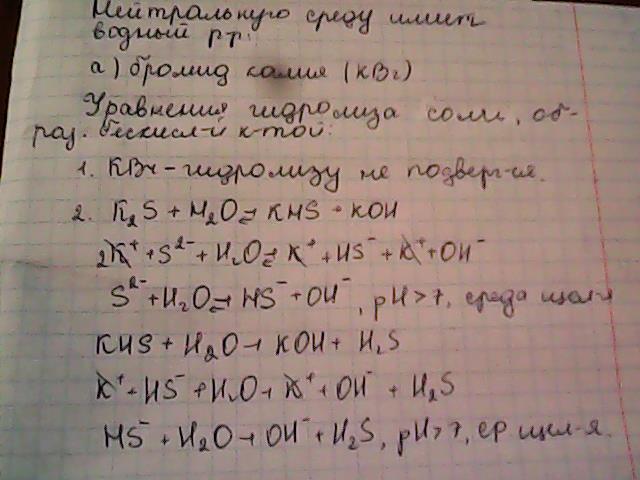 Нейтральную среду имеет
водный р-р:
а) бромид калия (KBr)
Уравнения гидролиза соли, об-
раз. бескисл-й к-той:
1. KBr – гидролизу не подверг-ся.
2. K₂S + H₂O ⇄ KHS + KOH
2K⁺ + S²⁻ + H₂O ⇄ K⁺ + HS⁻ + K⁺ + OH⁻
S²⁻ + H₂O ⇄ HS⁻ + OH⁻, pH > 7, среда щел-я
KHS + H₂O → KOH + H₂S
K⁺ + HS⁻ + H₂O → K⁺ + OH⁻ + H₂S
HS⁻ + H₂O → OH⁻ + H₂S, pH > 7, ср щел-я.